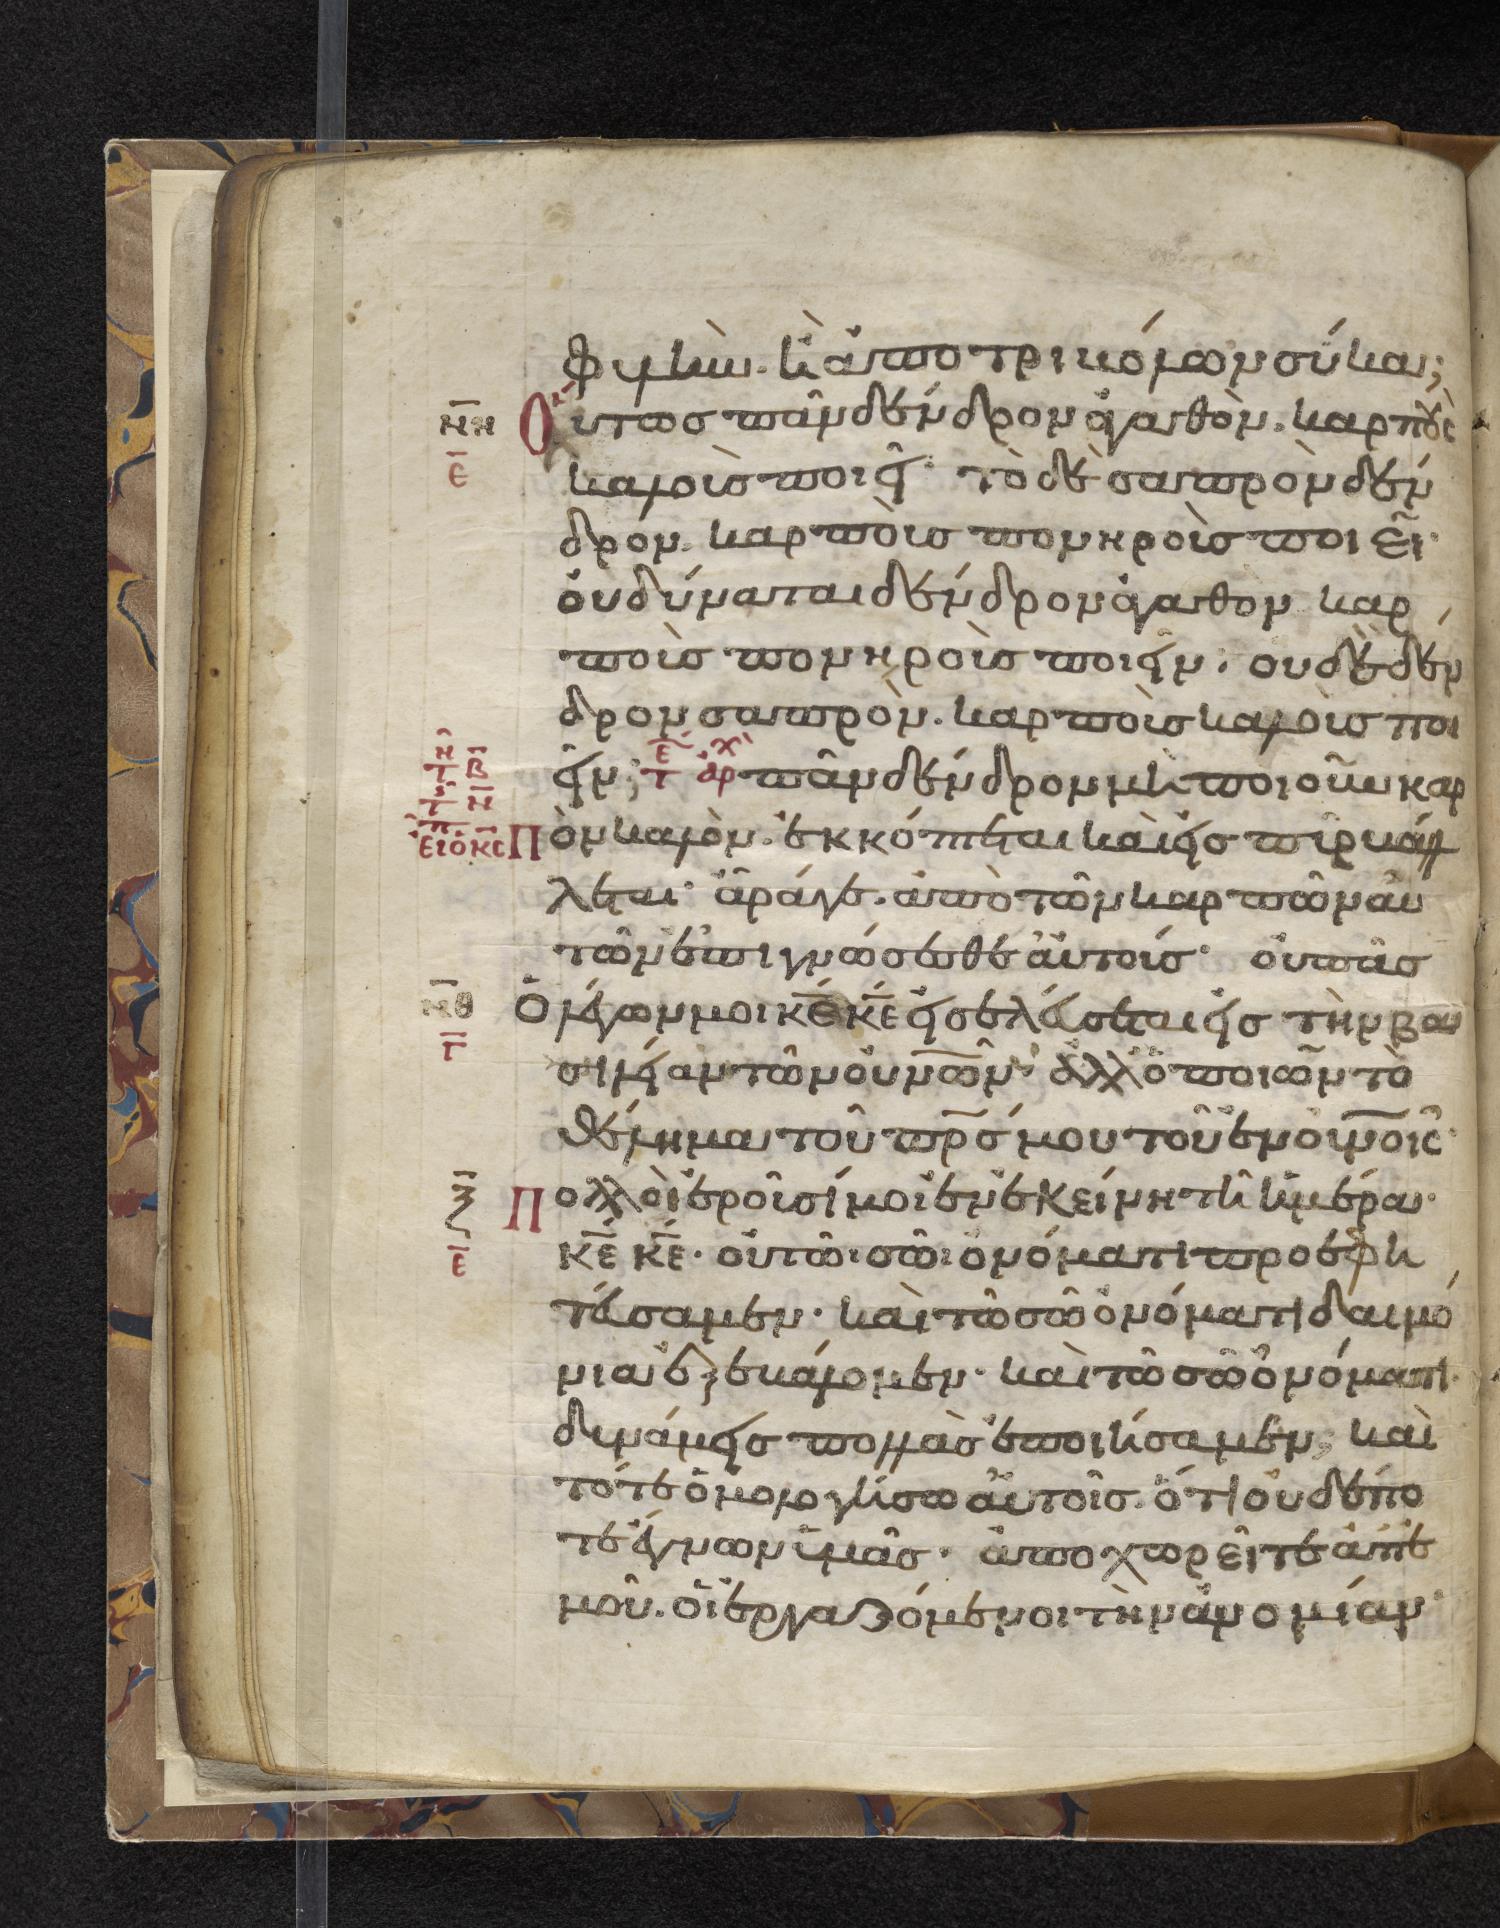 φυλὴν. ἢ ἀπὸ τριβόλων σύκα;
νη Οὕτως πᾶν δένδρον ἀγαθὸν. καρποὺς
ε καλοὺς ποιεῖ· τὸ δὲ σαπρὸν δέν
δρον. καρποὺς πονηροὺς ποιεῖ·
οὐ δύναται δένδρον ἀγαθὸν καρ
ποὺς πονηροὺς ποιεῖν· οὐδὲ δέν
δρον σαπρὸν. καρποὺς καλοὺς ποι
εῖν; τε ἀρχ πᾶν δένδρον μὴ ποιοῦν καρ
πὸν καλὸν. ἐκκόπτεται καὶ εἰς πῦρ βάλ
λεται· ἄραγε. ἀπὸ τῶν καρπῶν αὐ
τῶν ἐπιγνώσεσθε αὐτούς· οὐ πᾶς
νθ ὁ λέγων μοι κε κε εἰσελεύσεται εἰς τὴν βα
γ σιλείαν τῶν οὐνῶν· ἀλλ ὁ ποιῶν τὸ
θέλημα τοῦ πρσ μου τοῦ ἐν οὐνοις·
ξ Πολλοὶ ἐροῦσί μοι ἐν ἐκείνη τῆ ἡμέρα·
ε κε κε· οὐ τῶι σῶι ὀνόματι προεφη
τεύσαμεν· καὶ τῶ σῶ ὀνόματι δαιμό
νια ἐξεβάλομεν· καὶ τῶ σῶ ὀνόματι
δυνάμεις πολλὰς ἐποιήσαμεν; καὶ
τότε ὁμολογήσω αὐτοῖς. ὅτι οὐδέπο
τε ἔγνων ὑμᾶς· ἀποχωρεῖτε ἀπ ἐ
μοῦ. οἱ ἐργαζόμενοι τὴν ἀνομίαν·